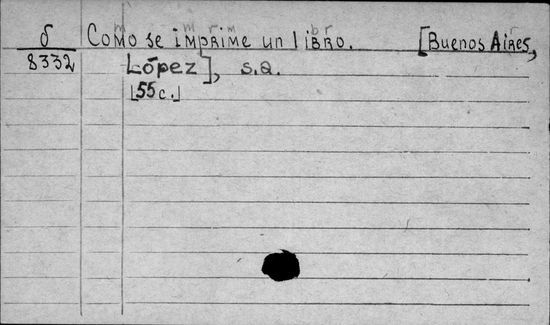 δ Como se imprime un libro. [Buenos Aires,
8332 López], s.a.
[55c.]